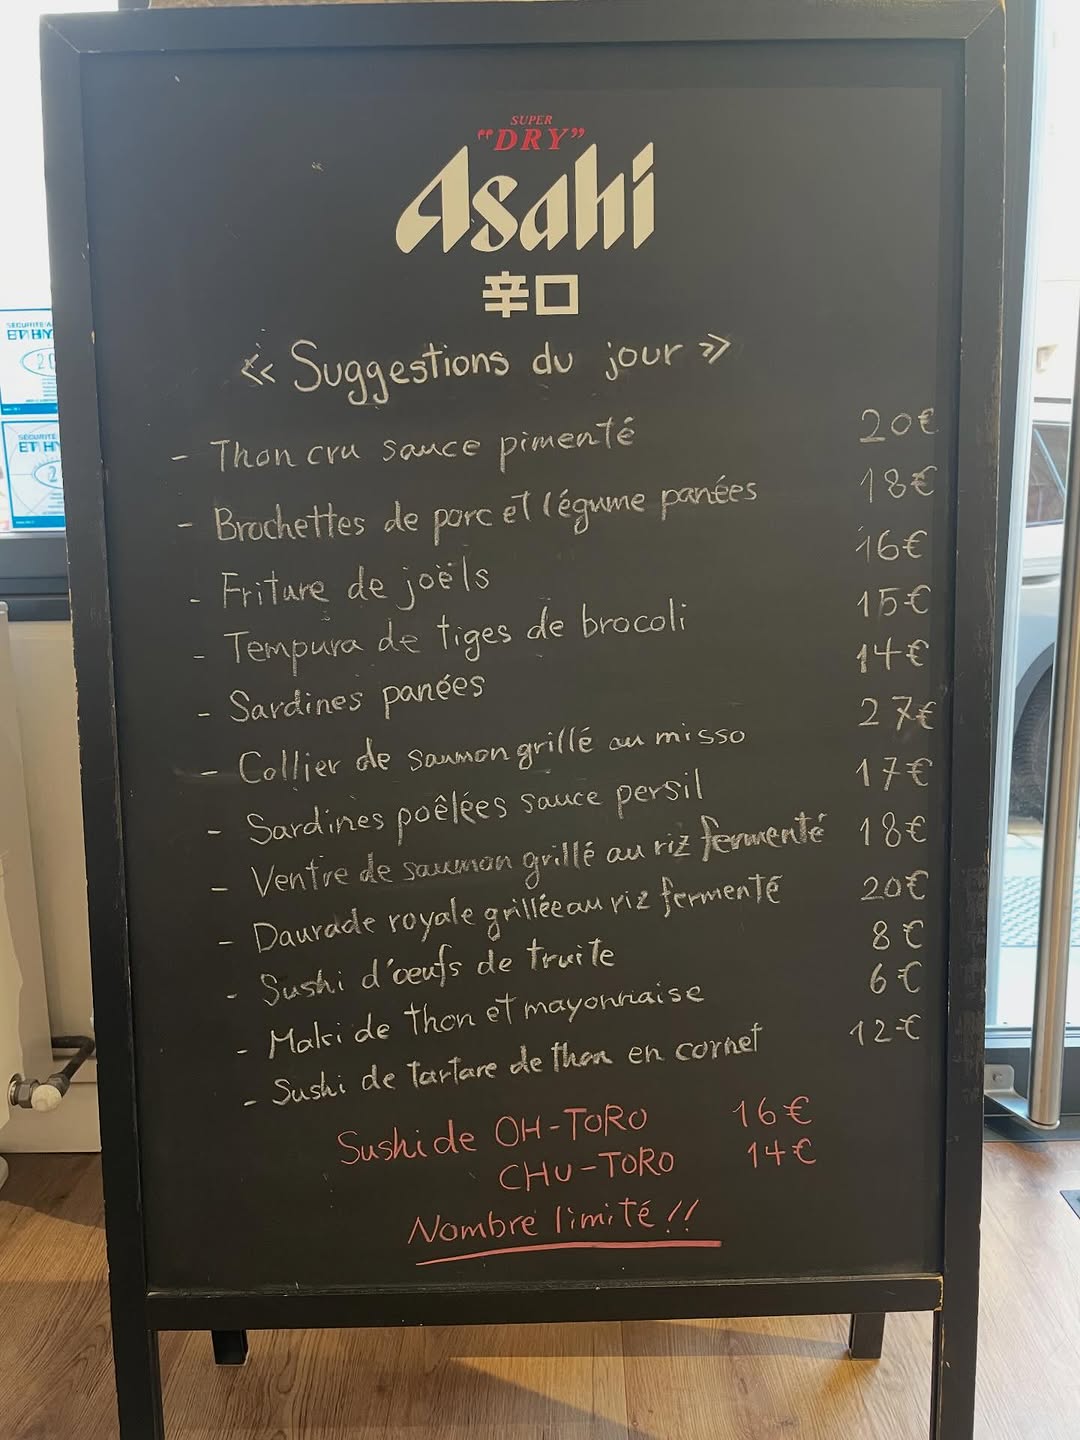 SUPER
"DRY"
Asahi
辛口
<< Suggestions du jour >>
- Thon cru sauce pimenté 20€
- Brochettes de porc et légume panées 18€
- Friture de joëls 16€
- Tempura de tiges de brocoli 15€
- Sardines panées 14€
- Collier de saumon grillé au misso 27€
- Sardines poêlées sauce persil 17€
- Ventre de saumon grillé au riz fermenté 18€
- Daurade royale grillée au riz fermenté 20€
- Sushi d'œufs de truite 8€
- Maki de thon et mayonnaise 6€
- Sushi de tartare de thon en cornet 12€
Sushi de OH-TORO 16€
CHU-TORO 14€
Nombre limité !!
SÉCURITÉ
ET HY
SÉCURITÉ
ET HY